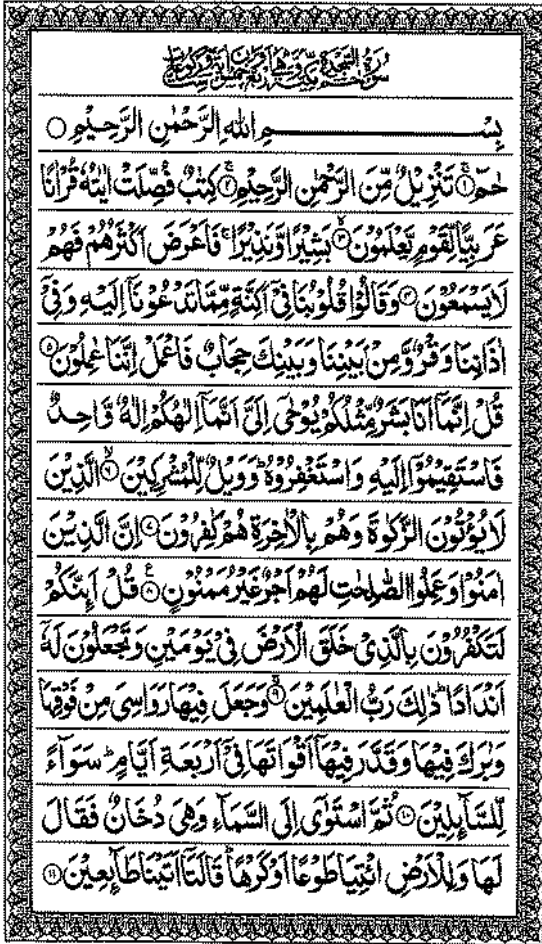 سُورَةُ حٰمٓ السَّجْدَةِ مَكِّيَّةٌ وَّهِیَ
بِسْمِ اللهِ الرَّحْمٰنِ الرَّحِيْمِ ○
حٰمٓ ۚ﴿۱﴾ تَنْزِيْلٌ مِّنَ الرَّحْمٰنِ الرَّحِيْمِ ۚ﴿۲﴾ كِتٰبٌ فُصِّلَتْ اٰيٰتُهٗ قُرْاٰنًا
عَرَبِيًّا لِّقَوْمٍ يَّعْلَمُوْنَ ۙ﴿۳﴾ بَشِيْرًا وَّنَذِيْرًا ۚ فَاَعْرَضَ اَكْثَرُهُمْ فَهُمْ
لَا يَسْمَعُوْنَ ﴿۴﴾ وَقَالُوْا قُلُوْبُنَا فِيْٓ اَكِنَّةٍ مِّمَّا تَدْعُوْنَآ اِلَيْهِ وَفِيْٓ
اٰذَانِنَا وَقْرٌ وَّمِنْۢ بَيْنِنَا وَبَيْنِكَ حِجَابٌ فَاعْمَلْ اِنَّنَا عٰمِلُوْنَ ﴿۵﴾
قُلْ اِنَّمَآ اَنَا بَشَرٌ مِّثْلُكُمْ يُوْحٰٓى اِلَيَّ اَنَّمَآ اِلٰهُكُمْ اِلٰهٌ وَّاحِدٌ
فَاسْتَقِيْمُوْٓا اِلَيْهِ وَاسْتَغْفِرُوْهُ ؕ وَوَيْلٌ لِّلْمُشْرِكِيْنَ ۙ﴿۶﴾ الَّذِيْنَ
لَا يُؤْتُوْنَ الزَّكٰوةَ وَهُمْ بِالْاٰخِرَةِ هُمْ كٰفِرُوْنَ ﴿۷﴾ اِنَّ الَّذِيْنَ
اٰمَنُوْا وَعَمِلُوا الصّٰلِحٰتِ لَهُمْ اَجْرٌ غَيْرُ مَمْنُوْنٍ ﴿۸﴾ قُلْ اَئِنَّكُمْ
لَتَكْفُرُوْنَ بِالَّذِيْ خَلَقَ الْاَرْضَ فِيْ يَوْمَيْنِ وَتَجْعَلُوْنَ لَهٗٓ
اَنْدَادًا ؕ ذٰلِكَ رَبُّ الْعٰلَمِيْنَ ۚ﴿۹﴾ وَجَعَلَ فِيْهَا رَوَاسِيَ مِنْ فَوْقِهَا
وَبٰرَكَ فِيْهَا وَقَدَّرَ فِيْهَآ اَقْوَاتَهَا فِيْٓ اَرْبَعَةِ اَيَّامٍ ؕ سَوَآءً
لِّلسَّآئِلِيْنَ ﴿۱۰﴾ ثُمَّ اسْتَوٰٓى اِلَى السَّمَآءِ وَهِيَ دُخَانٌ فَقَالَ
لَهَا وَلِلْاَرْضِ ائْتِيَا طَوْعًا اَوْ كَرْهًا ؕ قَالَتَآ اَتَيْنَا طَآئِعِيْنَ ﴿۱۱﴾